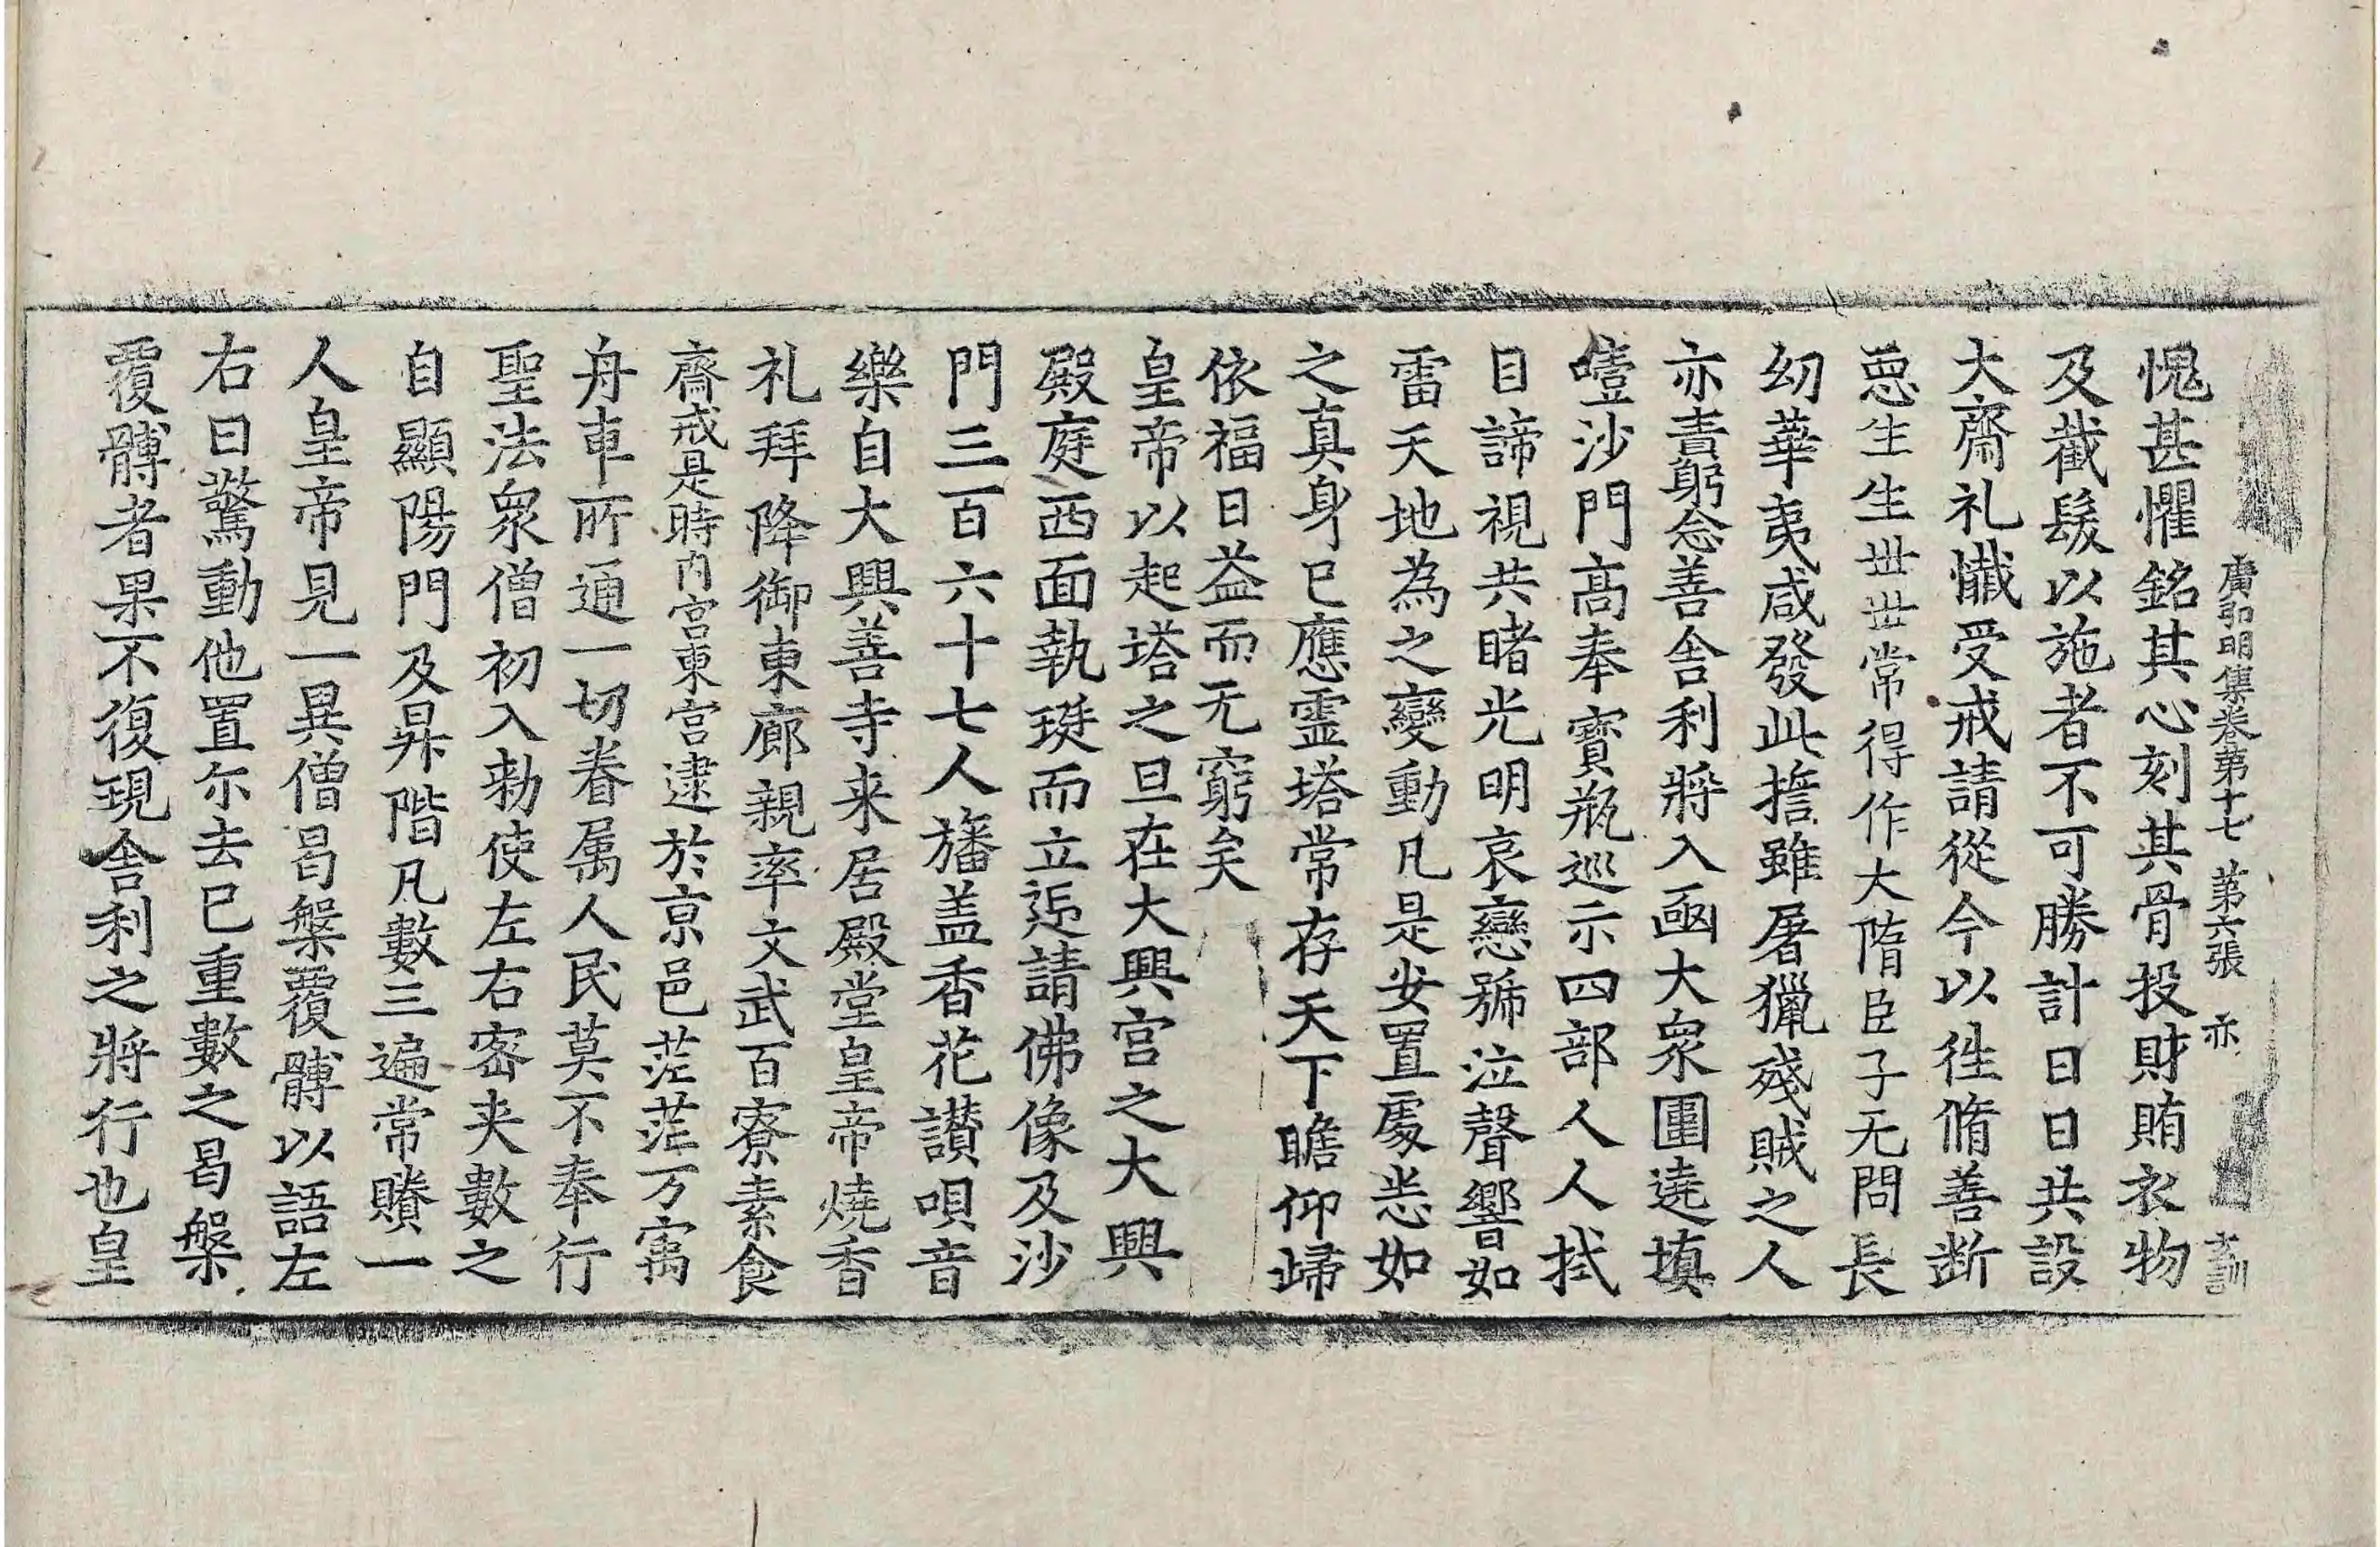 廣弘明集卷第十七 第六張 亦
愧甚懼銘其心刻其骨投財賄衣物
及截髮以施者不可勝計日日共設
大齋礼懺受戒請從今以徃脩善断
惡生生丗丗常得作大隋臣子无問長
幼華夷咸發此擔雖屠獵殘賊之人
亦責躬念善舍利將入凾大衆圍遶填
噎沙門髙奉寳瓶巡示四部人人拭
目諦視共睹光明哀戀號泣聲響如
雷天地為之變動凡是安置處悉如
之真身已應靈塔常存天下瞻仰歸
依福日益而无窮矣
皇帝以起塔之旦在大興宫之大興
殿庭西面執珽而立迊請佛像及沙
門三百六十七人旛盖香花讃唄音
樂自大興善寺来居殿堂皇帝燒香
礼拜降御東廊親率文武百寮素食
齋戒是時内宫東宫逮於京邑茫茫万㝢
舟車所通一切眷属人民莫不奉行
聖法衆僧初入勑使左右密夹數之
自顯陽門及昇階凡數三遍常賸一
人皇帝見一異僧曷槃覆髆以語左
右曰驚動他置尔去已重數之曷槃
覆髆者果不復現舍利之將行也皇